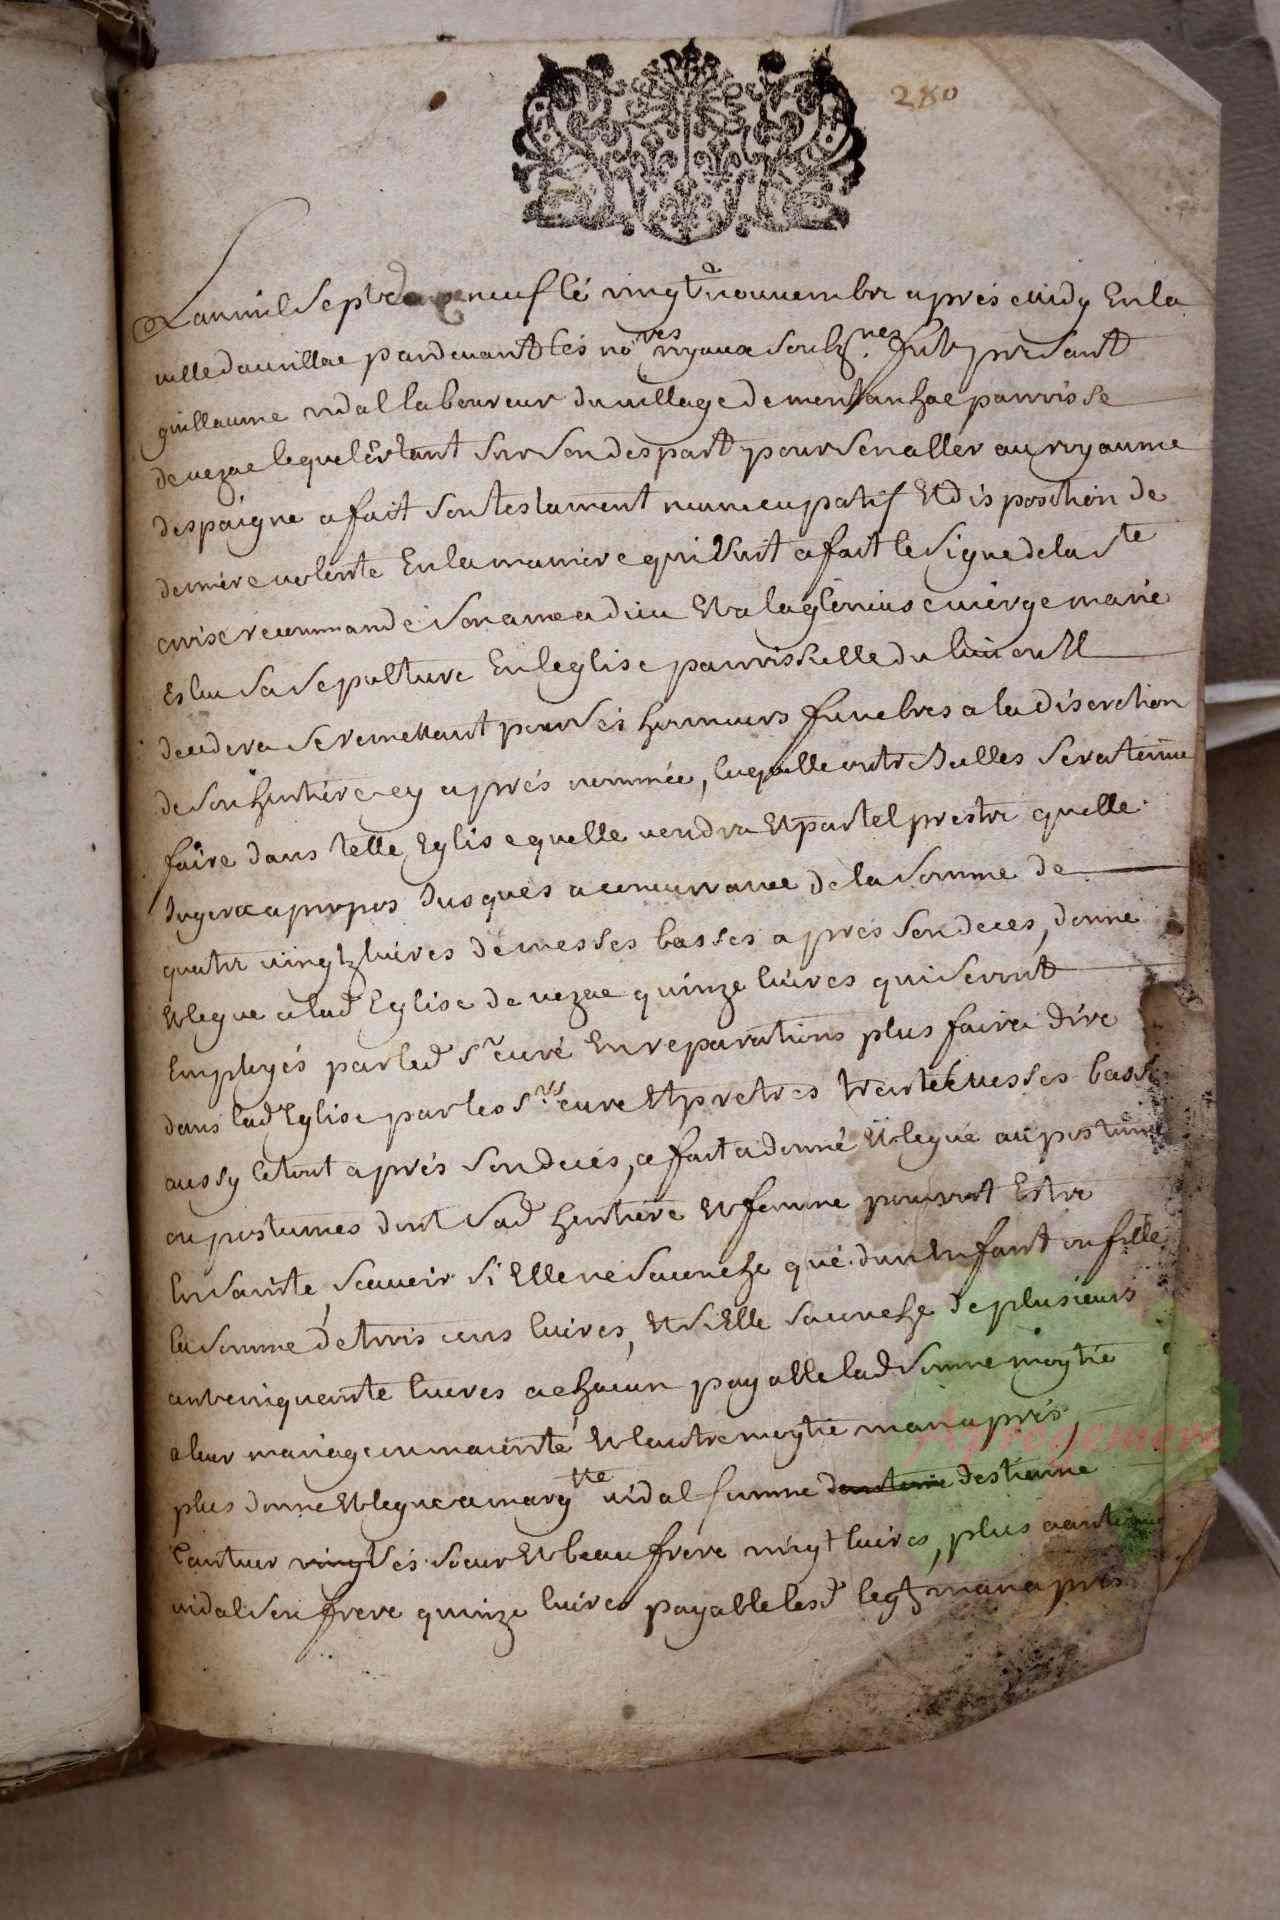 280
Lan mil sept cens neuf le vingt nouvembre apres midy En la
ville daurillac pardevant les no.res royaux soubz.nez fut presant
guillaume vidal laboureur du village de montanhac parroisse
de vezac lequel estant sur son despart pour sen aller au royaume
despaigne a fait son testament nuncupatif Et disposition de
derniere volonte En la maniere qui suit a fait le signe de la s.te
croix recommandé son ame a dieu Et a la glorieuse vierge marie
Esleu sa sepulture En leglise parroissielle du lieu ou Il
decedera se remettant pour ses honneurs funebres a la discretion
de son heritiere cy apres nommée, laquelle outre Iceulles sera tenue
faire dans telle Eglise quelle vendra Et par tel prestre quelle
Jugera a propos Jusques a concurrance de la somme de
quatre vingtz livres de messes basses apres son deces, donne
Et legue a lad Eglise de vezac quinze livres qui seront
Employés par led s.r curé En reparations plus faira dire
dans lad Eglise par les s.rs curé Et pretres trente messes basses
aussy le tout apres son deces, a fait a donné Et legué au postume
ou postumes dont sad heritiere Et femme pourroit Estre
Ensainte, scavoir si Elle ne sacouche que dun Enfant ou fille
la somme de trois cens livres, Et si Elle sacouche de plusieurs
cent cinquante livres a chacun payable lad somme moytié
a leur mariage ou majorité Et lautre moytié un an apres,
plus donne Et legue a marg.tte vidal femme destienne
Cantuer ses soeur Et beau frere vingt livres, plus a antoine
vidal son frere quinze livres payable lesd legz un an apres
Aprogemere